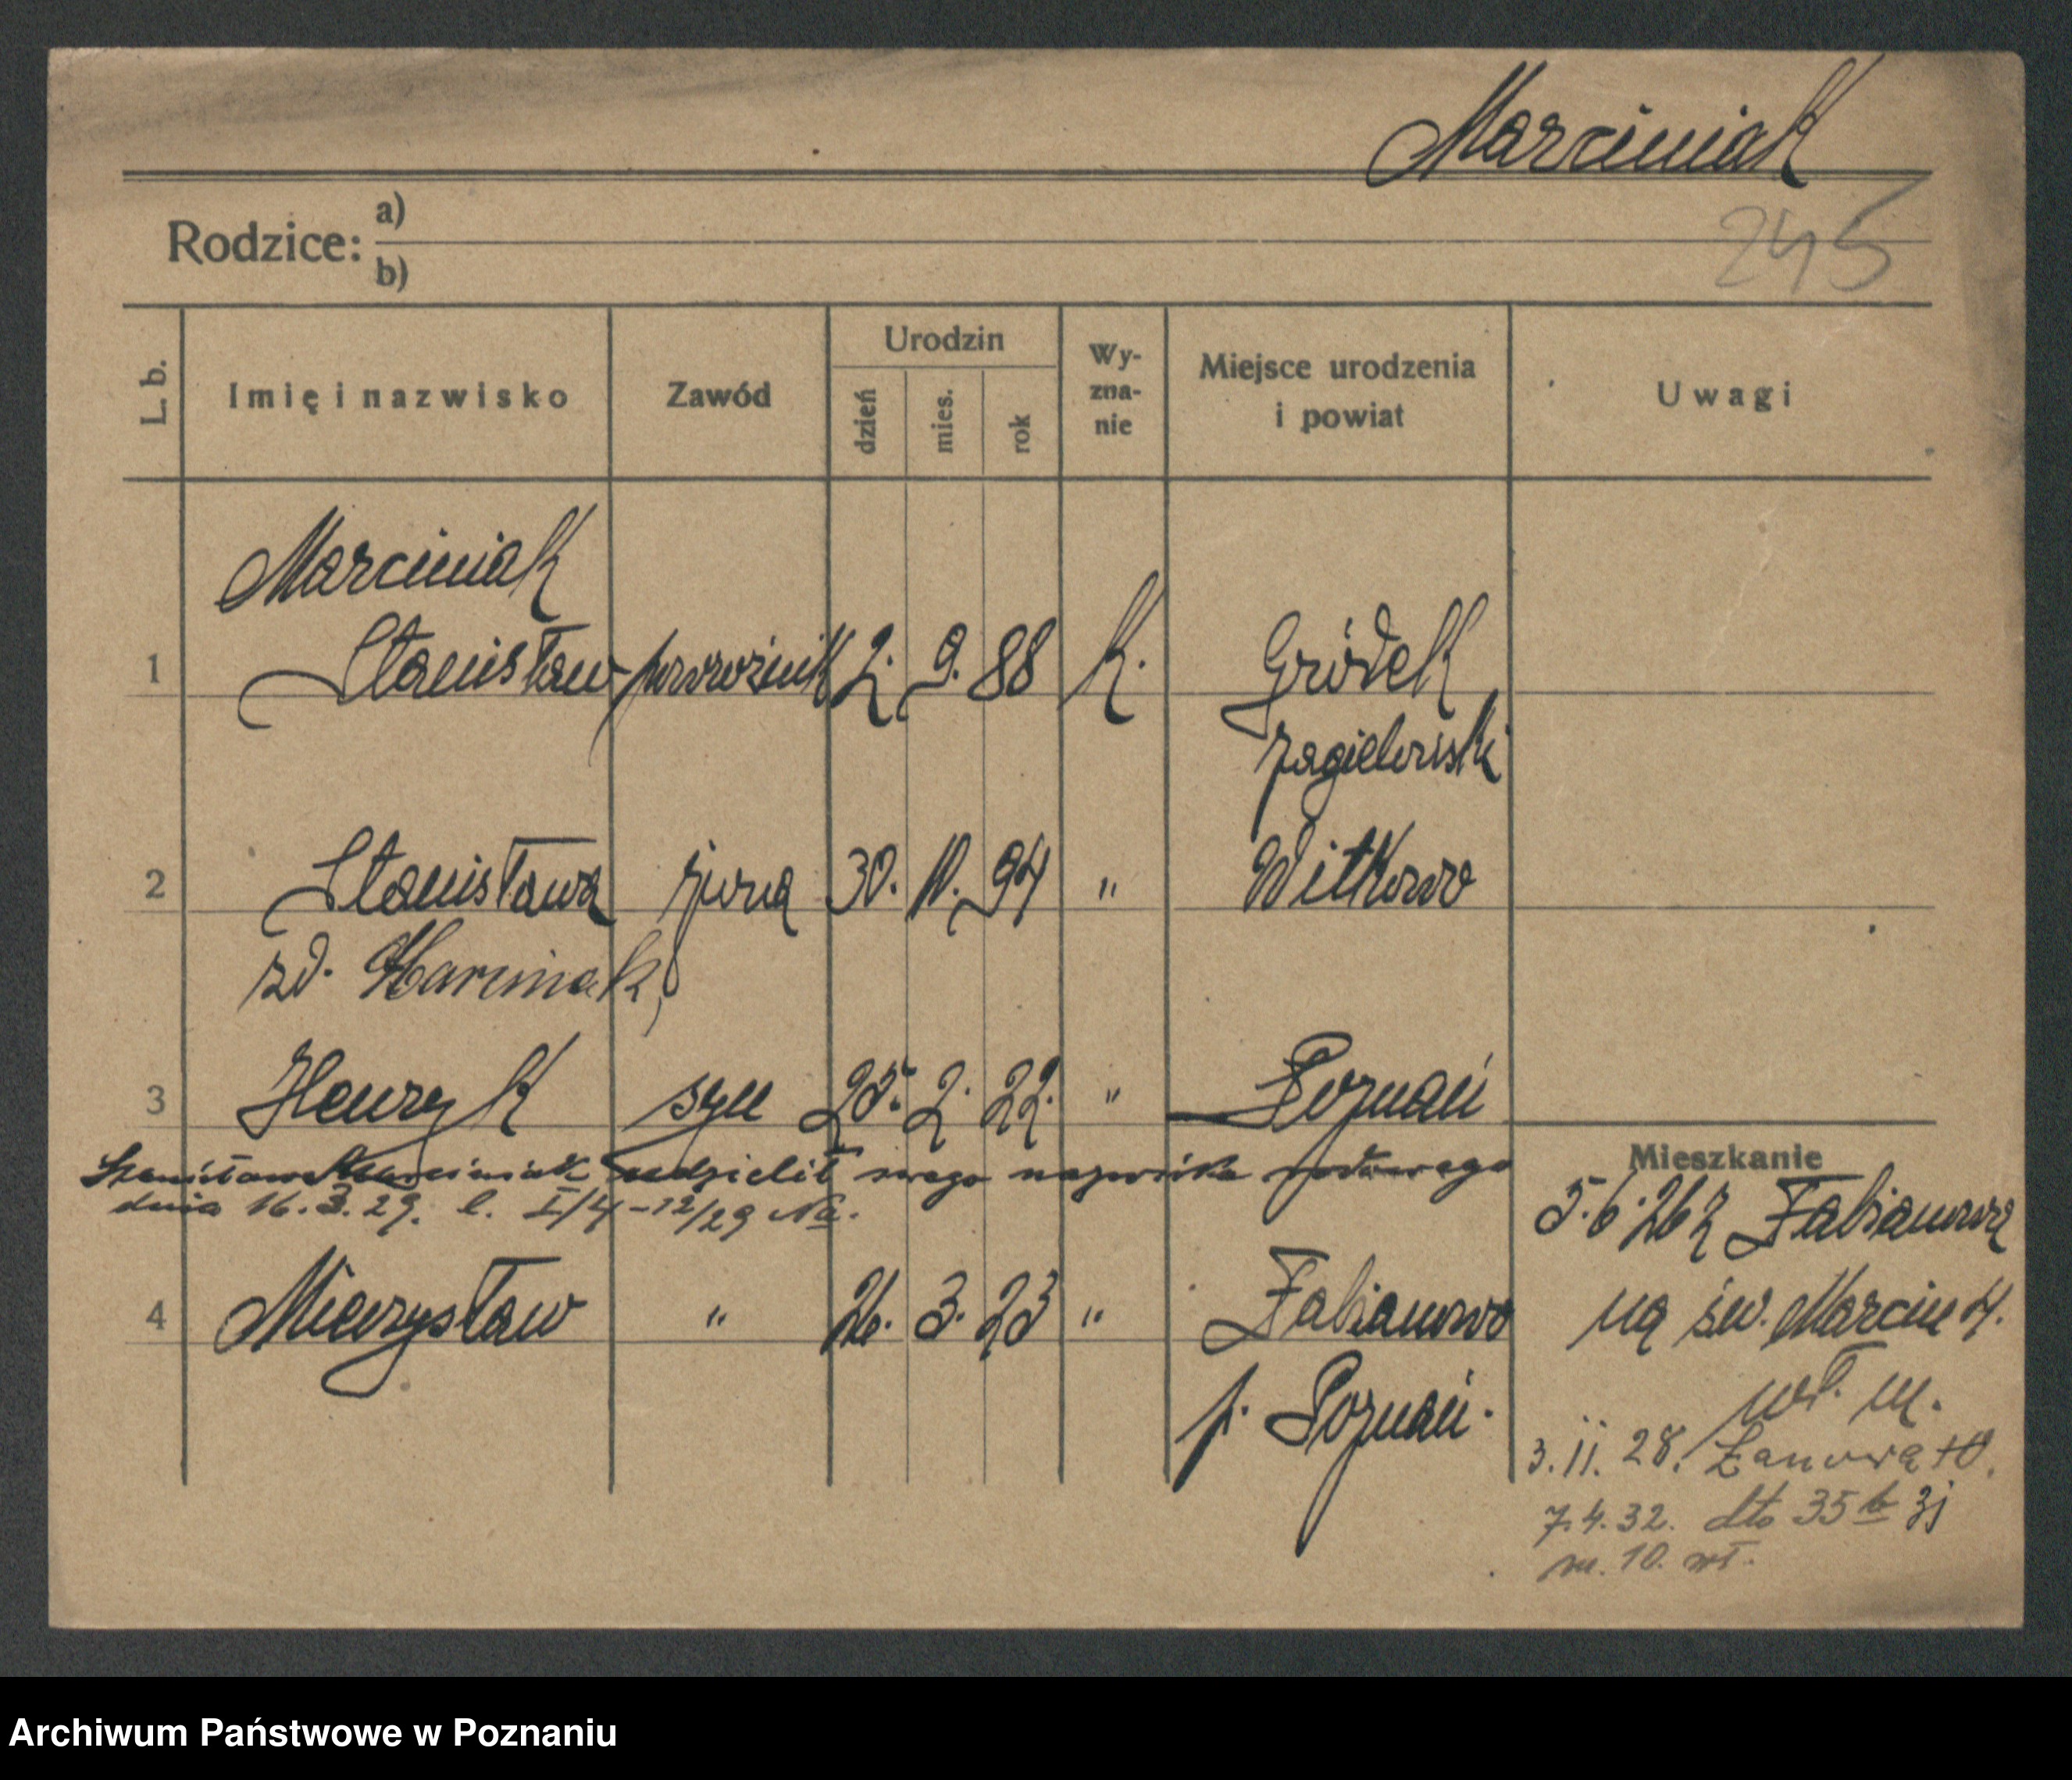 Marciniak
245
Rodzice: a)
b)
L. b.
Imię i nazwisko
Zawód
Urodzin
dzień
mies.
rok
Wy-
zna-
nie
Miejsce urodzenia
i powiat
Uwagi
Marciniak
1 Stanisław powroźnik 2. 9. 88 K. Gródek
Jagieloński
2 Stanisława żona 30. 10. 94 " Witkowo
zd. Marciniak
3 Henryk syn 25. 2. 22. " Poznań
Stanisław Marciniak udzielił swego nazwiska rodowego
dnia 16. 3. 29. l. I/4-12/29 Na.
4 Mieczysław " 26. 3. 23 " Fabianowo
p. Poznań.
Mieszkanie
5.6.26 z Fabianowa
na św. Marcin 4.
wł. m.
3. 11. 28. Łanowa
7.4.32. dto 35 b
m. 10. wł.
Archiwum Państwowe w Poznaniu